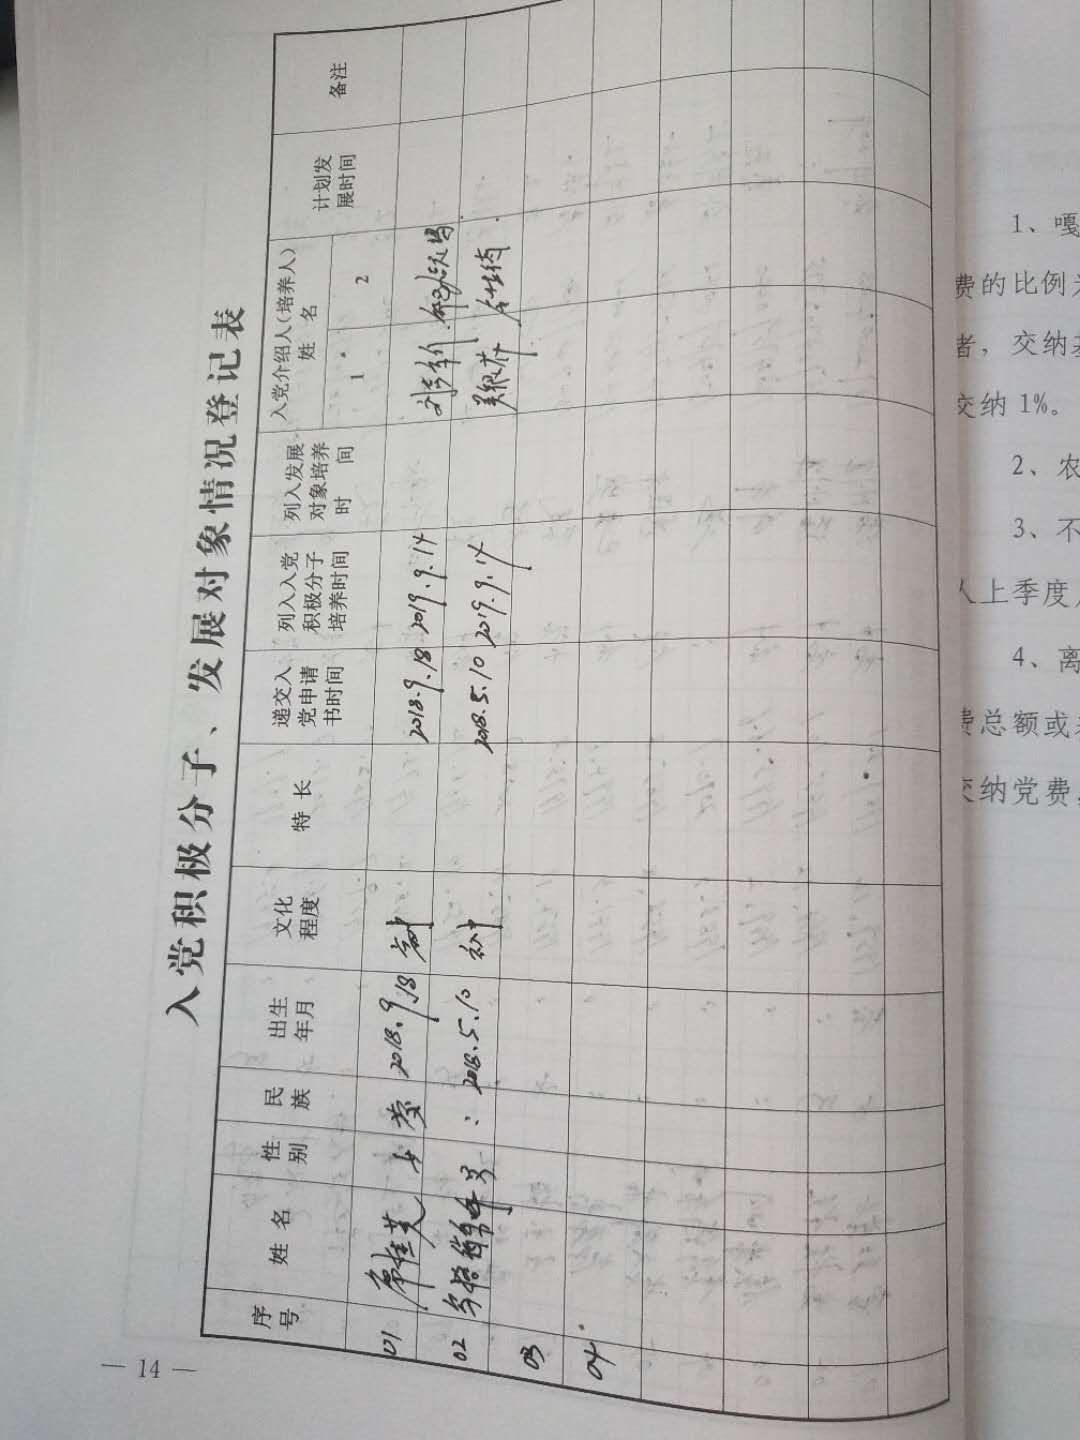 入党积极分子、发展对象情况登记表
序号 姓名 性别 民族 出生年月 文化程度 特长 递交入党申请书时间 列入入党积极分子培养时间 列入发展对象培养时间 入党介绍人(培养人)姓名 计划发展时间 备注
1 2
01 女 蒙 2018.9.18 高中 2018.9.18 2019.9.14
02 男 〃 2018.5.10 初中 2018.5.10 2019.9.14
03
04
— 14 —
1、嘎
费的比例
者，交纳
交纳1%。
2、农
3、不
人上季度
4、离
费总额或
交纳党费，